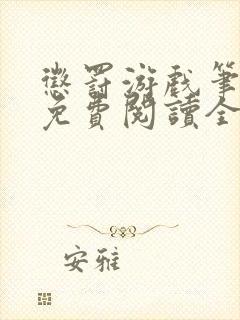 懲罰游戲筆
免費閱讀全
安雅